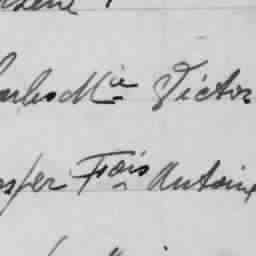 arles Mie Victor
sper Fois Antoine